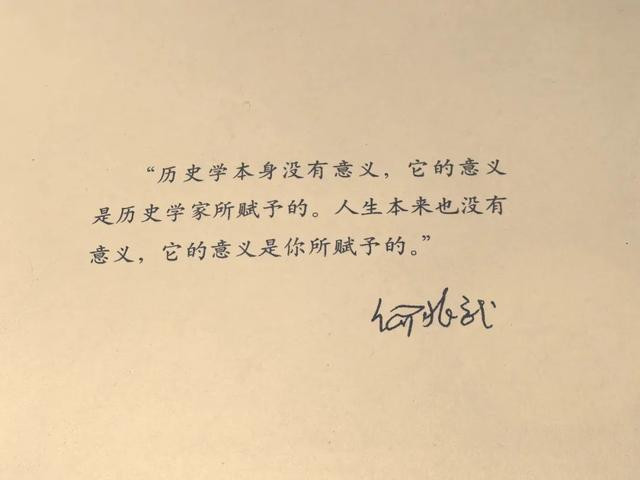 “历史学本身没有意义，它的意义
是历史学家所赋予的。人生本来也没有
意义，它的意义是你所赋予的。”
何兆武